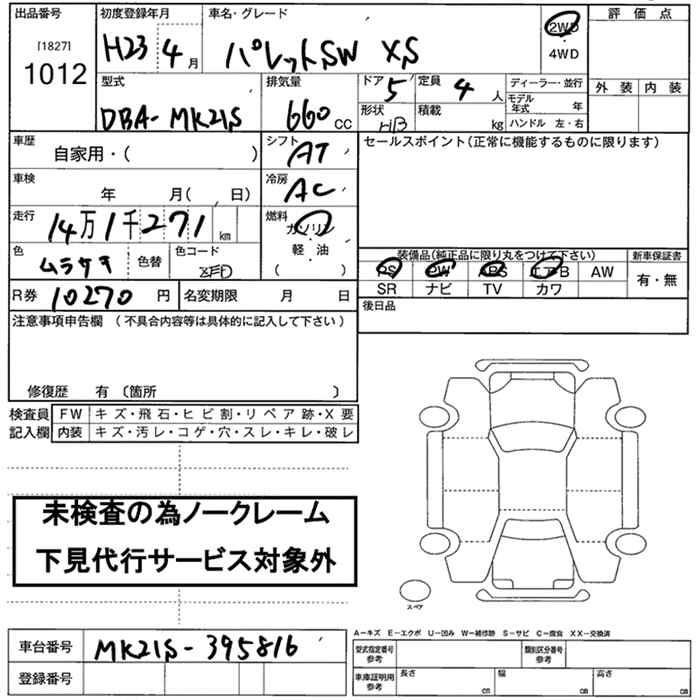 出品番号 初度登録年月 車名・グレード 評価点
[1827]
1012
H23 4月 パレットSW XS
2WD
・
4WD
外装 内装
型式 排気量 ドア 定員 ディーラー・並行
DBA-MK21S 660 CC 5 4人
モデル年式 年
形状 積載 ハンドル 左・右
HB kg
車歴 シフト セールスポイント(正常に機能するものに限ります)
自家用・( ) AT
車検 冷房
年 月( 日) AC
走行 燃料
14万1千271 km ガソリン
軽・油
( )
色 色替 色コード
ムラサキ
装備品(純正品に限り丸をつけて下さい) 新車保証書
PS PW ABS エアB AW 有・無
SR ナビ TV カワ
R券 10270円 名変期限 月 日
後日品
注意事項申告欄 (不具合内容等は具体的に記入して下さい)
修復歴 有 〔箇所 〕
検査員 FW キズ・飛石・ヒビ割・リペア跡・X要
記入欄 内装 キズ・汚レ・コゲ・穴・スレ・キレ・破レ
未検査の為ノークレーム
下見代行サービス対象外
スペア
A-キズ E-エクボ U-凹み W-補修跡 S-サビ C-腐食 XX-交換済
車台番号 MK21S-395816
型式指定番号 参考 類別区分番号 参考
登録番号
車庫証明用 参考 長さ cm 幅 cm 高さ cm